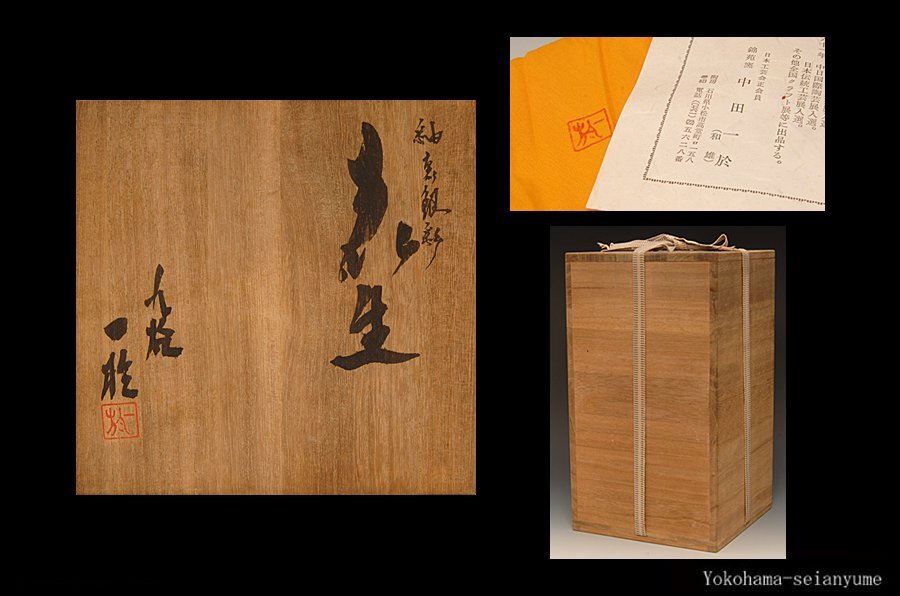 釉裏銀彩
花生
九谷
一於
一於
九十一年 中日国際陶芸展入選。
日本伝統工芸展入選。
その他全国クラフト展等に出品する。
日本工芸会正会員
錦苑窯 中田一於
(和雄)
石川県小松市高堂町
電話
一於
Yokohama-seianyume